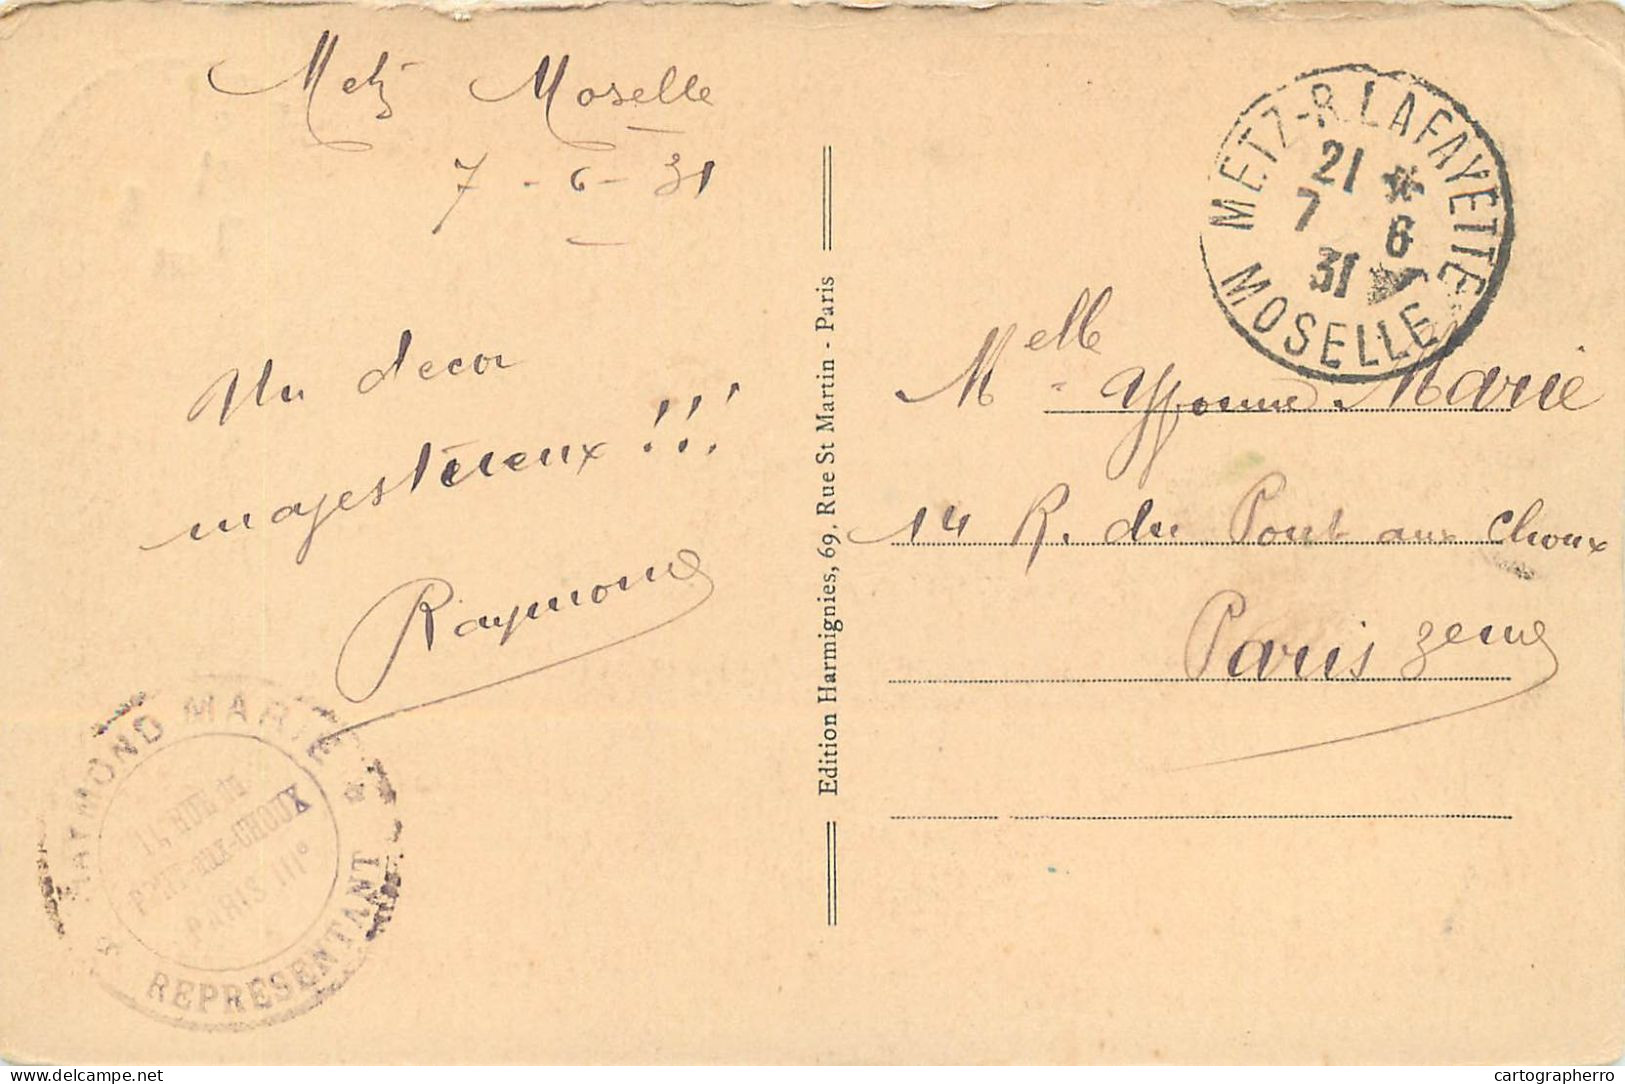 Metz Moselle
7 - 6 - 31
Un decor
majestueux !!!
Raymond
RAYMOND MARIE
14 RUE DU
PONT-AUX-CHOUX
PARIS IIIº
REPRESENTANT
Edition Harmignies, 69, Rue St Martin - Paris
METZ-R. LAFAYETTE
21 *
7 6
31
MOSELLE
Melle Yvonne Marie
14 R. du Pont aux Choux
Paris 3eme
delcampe.net
cartographerro